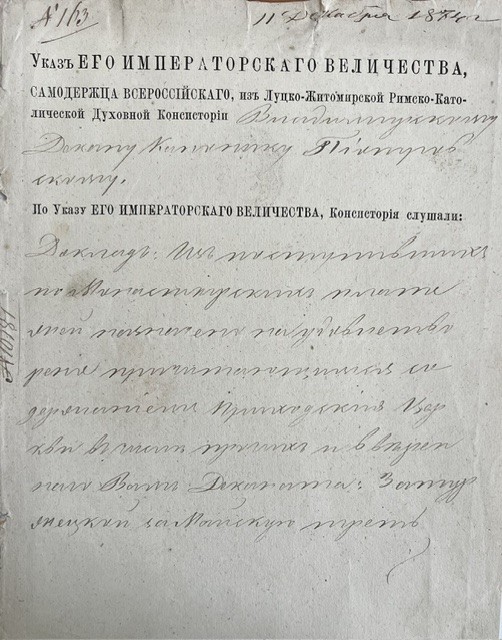 № 163
11 Декабря 1874 г
Указъ ЕГО ИМПЕРАТОРСКАГО ВЕЛИЧЕСТВА,
САМОДЕРЖЦА ВСЕРОССІЙСКАГО, изъ Луцко-Житомирской Римско-Като-
лической Духовной Консисторіи Владимірскому
Декану Канонику Піотров
скому.
По Указу ЕГО ИМПЕРАТОРСКАГО ВЕЛИЧЕСТВА, Консисторія слушали:
Докладъ: Изъ поступившихъ
по Монастырскихъ
назначено на удовлетво
реніе причитающихся со
держателям Приходскихъ Цер
квей в числѣ прочихъ и ввѣрен
наго Вамъ Деканата: Затур
нецкой за Майскую треть